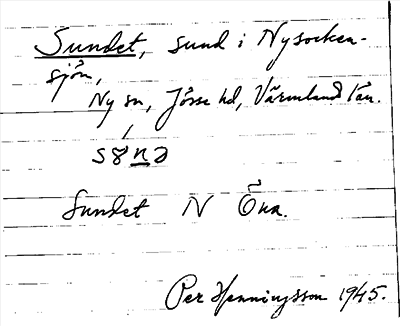 Sundet, sund i Nysocken-
sjön,
Ny sn, Jösse hd, Värmland län.
s8nə
Sundet N Öna.
Per Henningsson 1945.